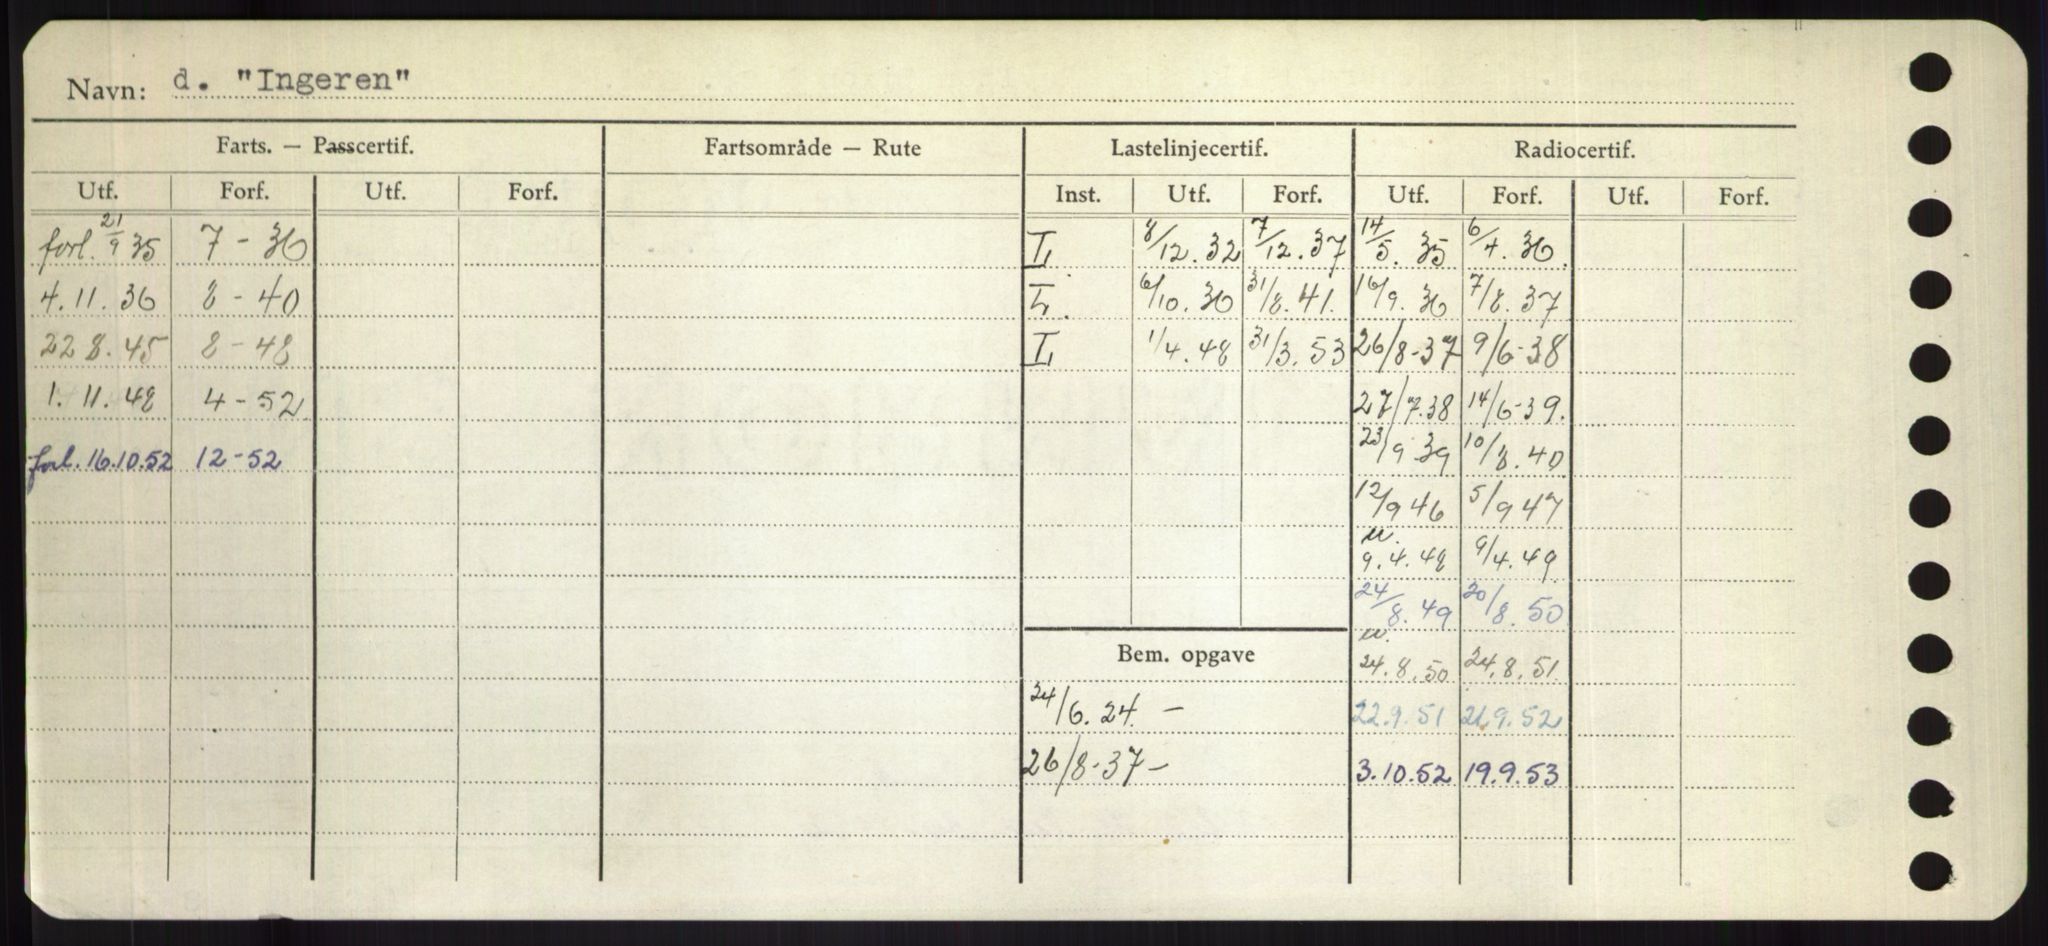 Navn: d. "Ingeren"
Farts. — Passcertif. Fartsområde — Rute Lastelinjecertif. Radiocertif.
Utf. Forf. Utf. Forf. Inst. Utf. Forf. Utf. Forf. Utf. Forf.
forl. 21/9 35 7 - 36 L 8/12. 32 7/12. 37 14/5. 35 6/4. 36.
4. 11. 36 8 - 40 L. 6/10. 36 31/8. 41. 16/9. 36 7/8. 37
22 8. 45 8 - 48 L 1/4. 48 31/3. 53 26/8-37 9/6-38
1. 11. 48 4 - 52 27/7.38 14/6-39.
forl. 16.10.52 12-52 23/9 39 10/8. 40
12/9 46 5/9 47
u.
9. 4. 48 9/4. 49
24/8. 49 20/8. 50
u.
Bem. opgave 24. 8. 50 24. 8. 51.
24/6. 24. — 22.9.51 21.9.52
26/8-37 — 3.10.52 19.9.53